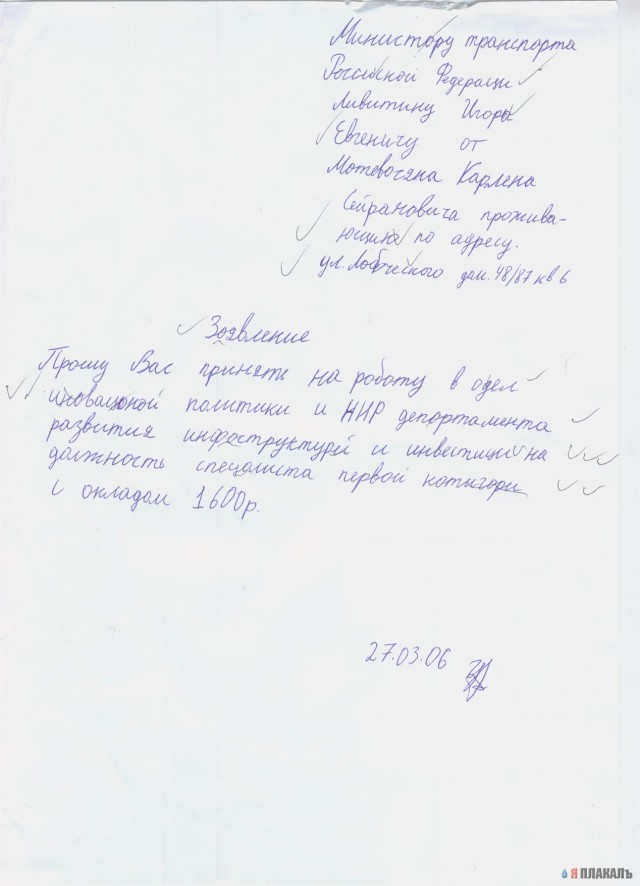 Министору транспорта
Россиской Федераци
Ливитину Игорю
Евгеничу от
Мотевосяна Карлена
Сейрановича прожива-
ющию по адресу.
ул. дом. 48/87 кв 6
Зоявление
Прошу Вас принять на роботу в одел
иновационой политики и НИР депортамента
развития инфоструктурй и инвестици на
должность спецалиста первой котигори
с окладом 1600р.
27.03.06
Я ПЛАКАЛЪ